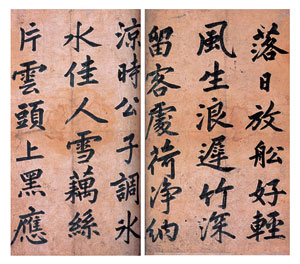 落日放船好輕
風生浪遲竹深
留客處荷淨納
涼時公子調冰
水佳人雪藕絲
片雲頭上黑應